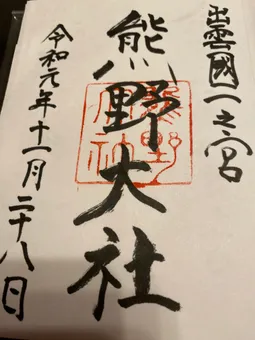 出雲國一之宮
熊野大社
令和元年十一月二十八日
熊野大社